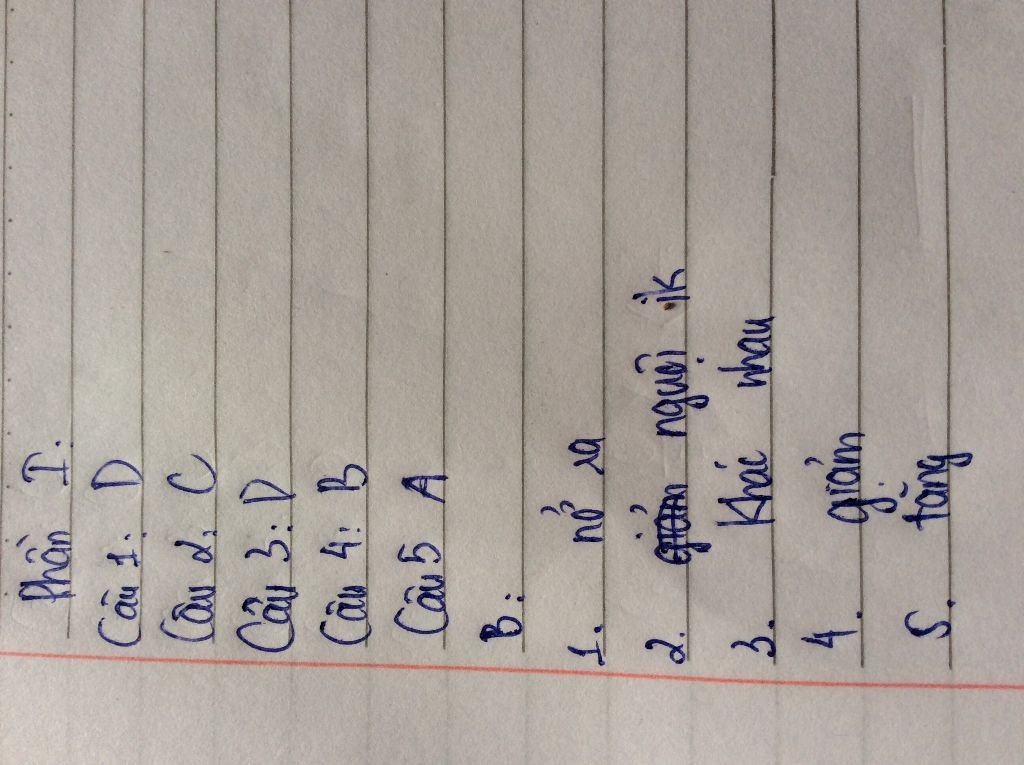 Phần I.
Câu 1: D
Câu 2: C
Câu 3: D
Câu 4: B
Câu 5 A
B:
1. nở ra
2. nguội
3. Khác nhau
4. giảm
5. tăng